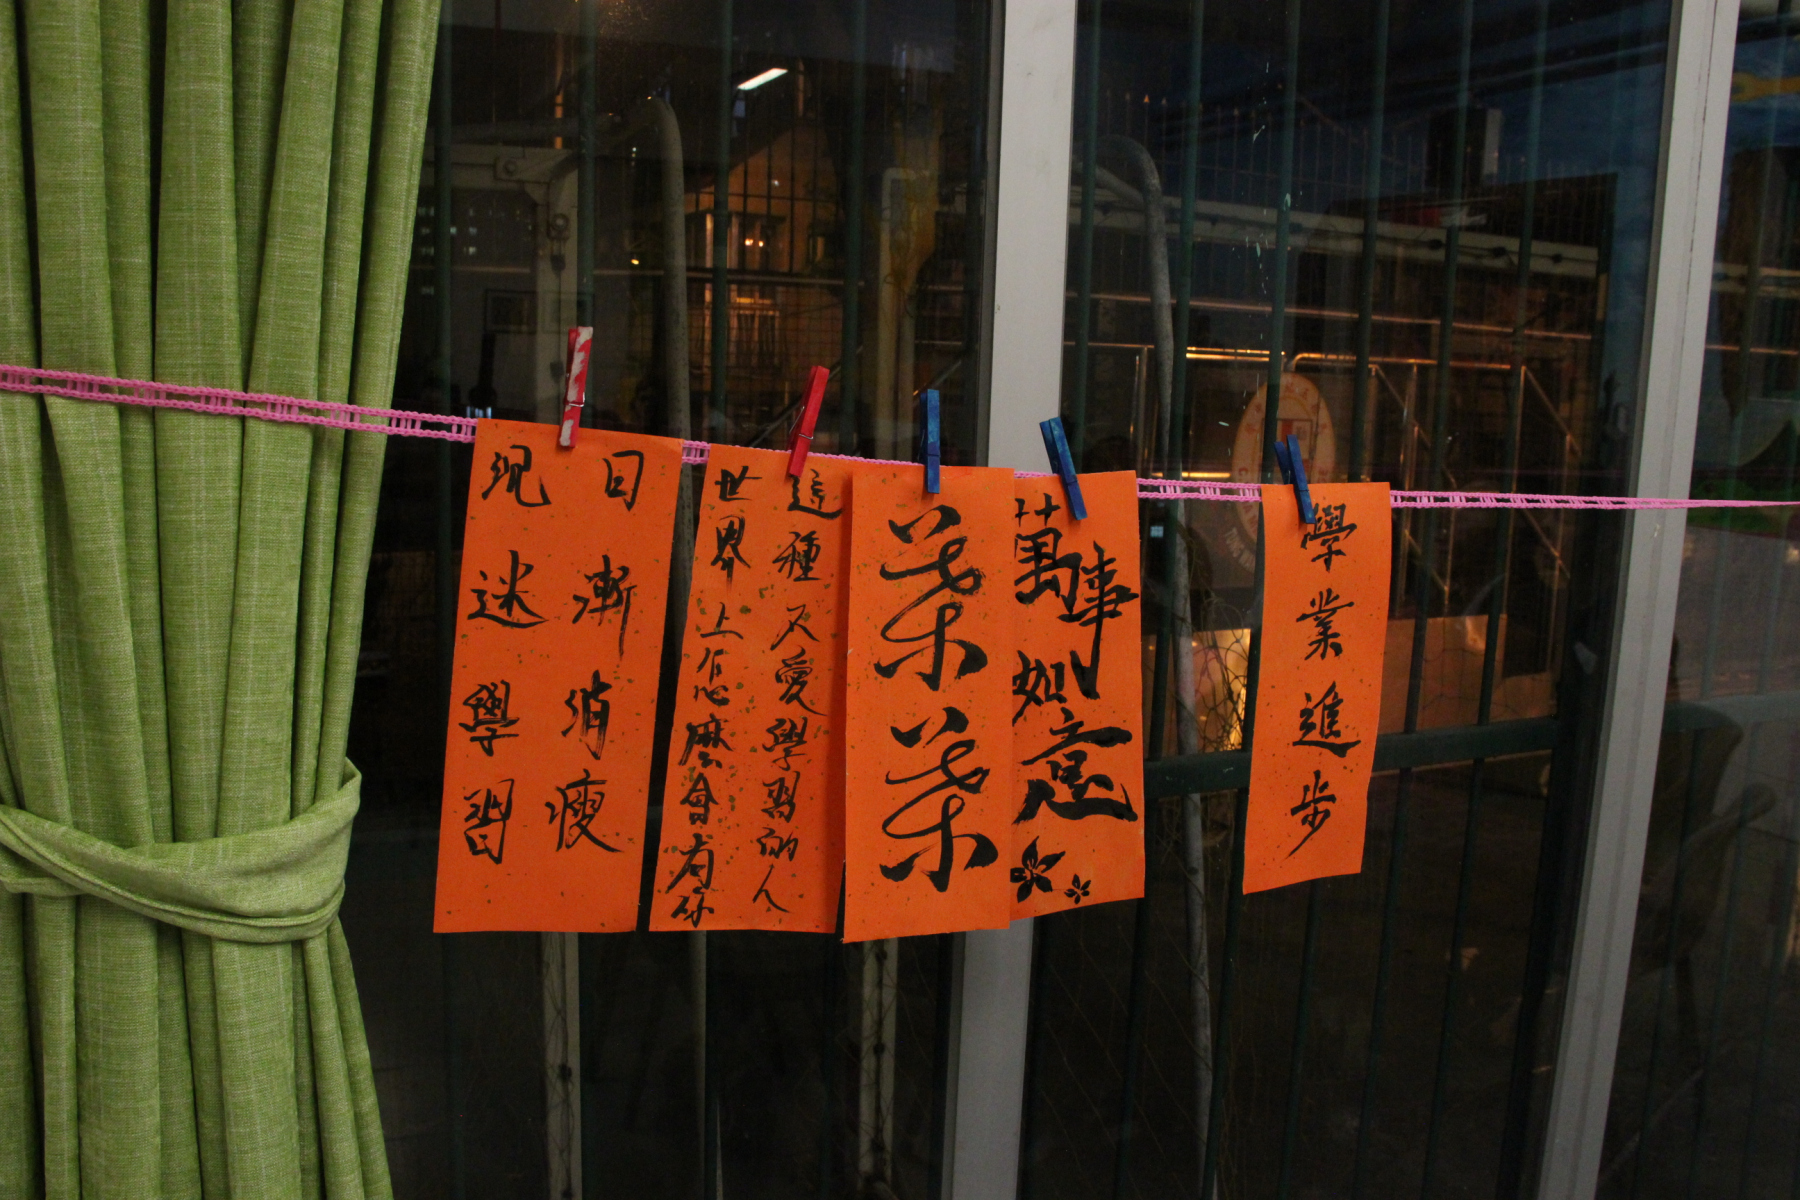 沉迷學習
日漸消瘦
世界上怎麼會有你
這種又愛學習的人
萬事如意
學業進步